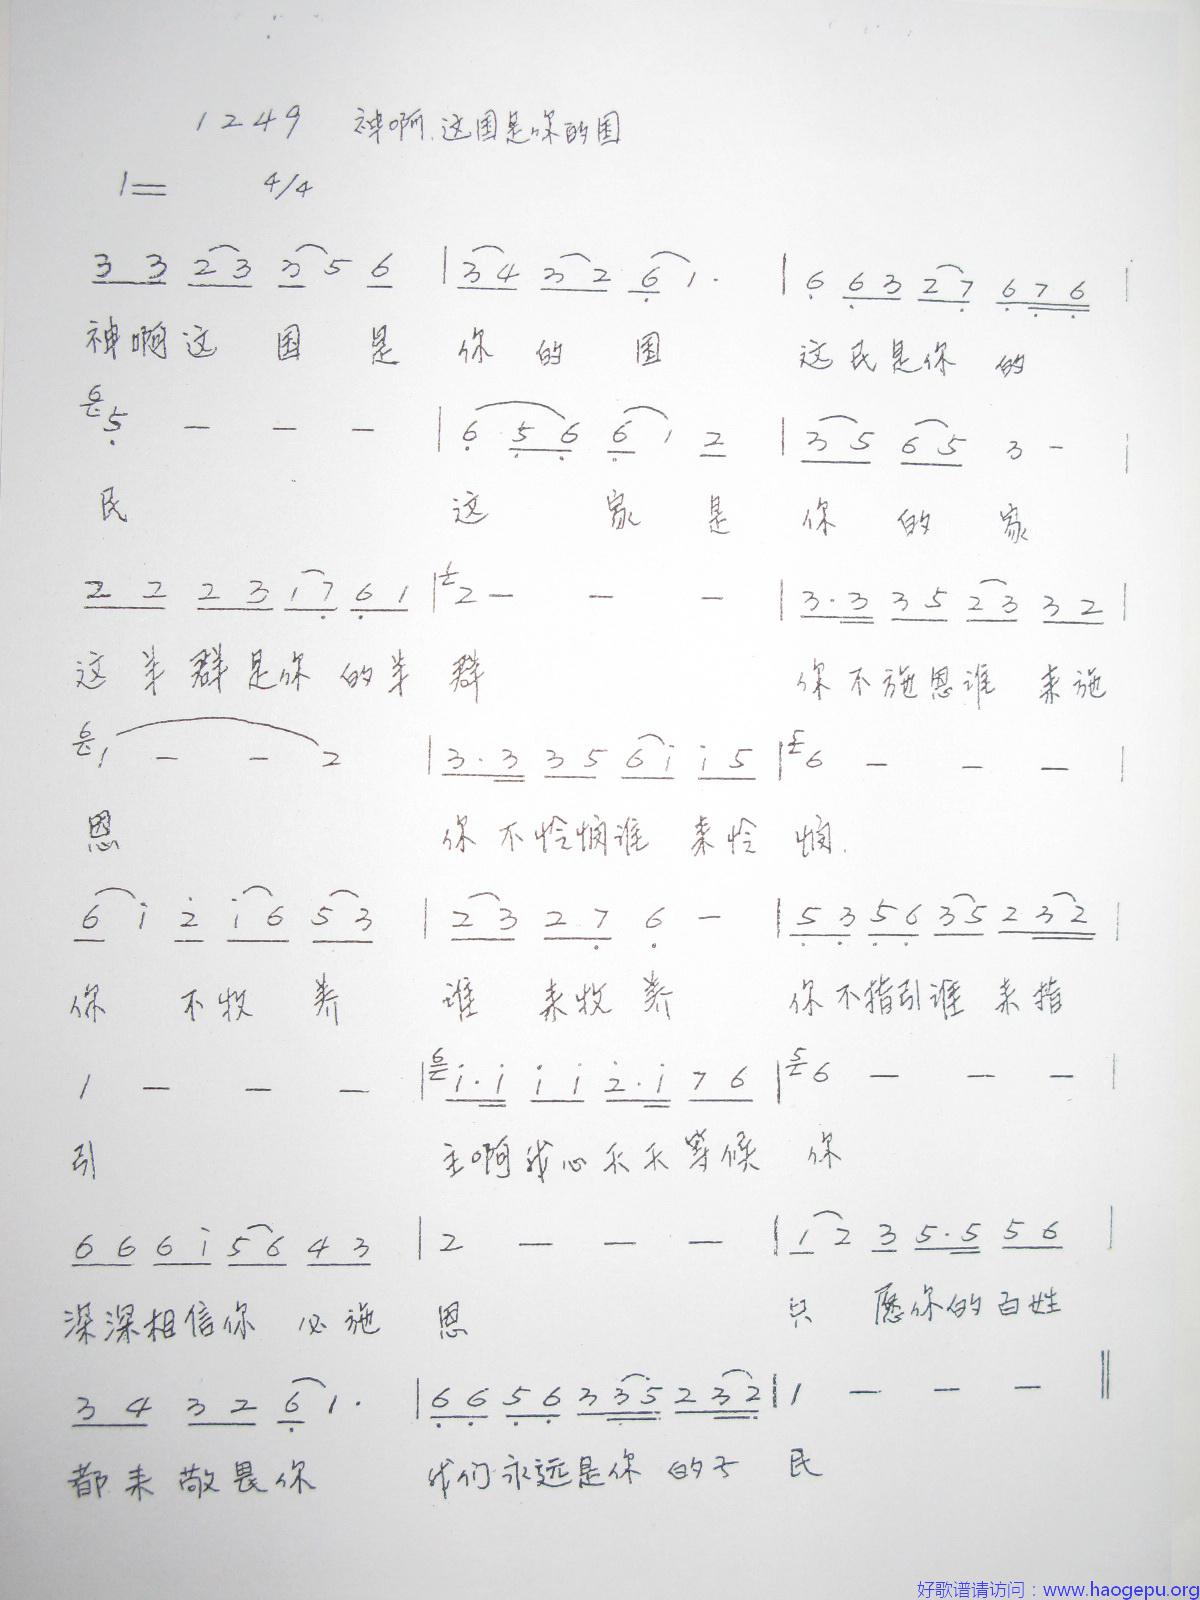 1249 神啊,这国是你的国
1= 4/4
3 3 2 3 3 5 6 | 3 4 3 2 6 1 · | 6 6 3 2 7 6 7 6 |
神啊这国是 你的国 这民是你的
6 5 — — — | 6 5 6 6 1 2 | 3 5 6 5 3 - |
民 这家是 你的家
2 2 2 3 1 7 6 1 | 2 — — — | 3·3 3 5 2 3 3 2 |
这羊群是你的羊 群 你不施恩谁来施
6 1 — — 2 | 3·3 3 5 6 i i 5 | 6 — — — |
恩 你不怜悯谁来怜 悯.
6 i 2 i 6 5 3 | 2 3 2 7 6 — | 5 3 5 6 3 5 2 3 2 |
你不牧养 谁来牧养 你不指引谁来指
1 — — — | 6 i·i i i 2·i 7 6 | 5 6 — — — |
引 主啊我心天天等候 你
6 6 6 i 5 6 4 3 | 2 — — — | 1 2 3 5·5 5 6 |
深深相信你必施 恩 只愿你的百姓
3 4 3 2 6 1 · | 6 6 5 6 3 3 5 2 3 2 | 1 — — — ‖
都来敬畏你 我们永远是你的子 民
好歌谱请访问：www.haogepu.org